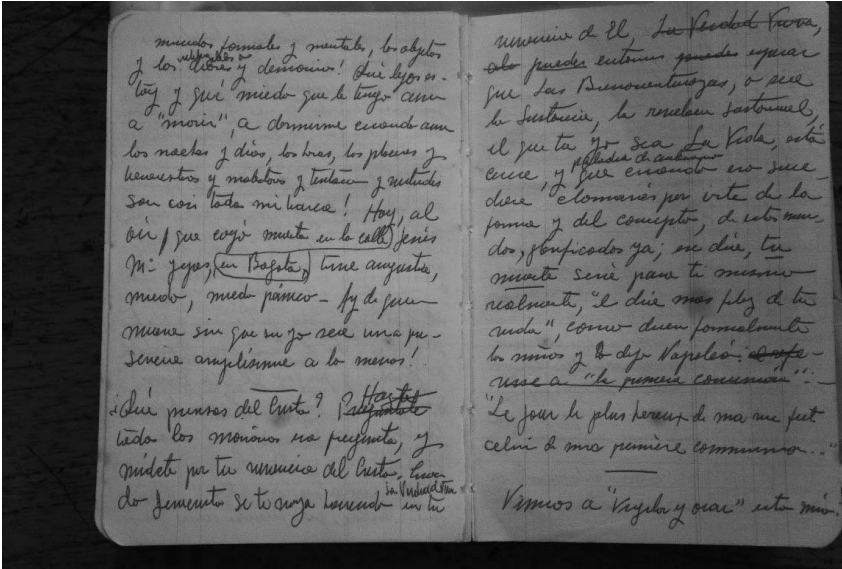 mundos formales y mentales, los objetos
y los dioses y demonios! Qué lejos es-
toy y qué miedo que le tengo aun
a "morir", a dormirme cuando aun
los noctes y días, los , los placeres y
y malditos y y virtudes
son con toda mi ! Hoy, al
oír que cayó muerta en la calle Jesús
Mª Yepes, en Bogotá, tuve angustia,
miedo, miedo pánico – Ay de quien
muere sin que su yo sea una pre-
sencia amplísima a lo menos!
¿Qué piensas del Cristo? Hazte
todas las mañanas esa pregunta, y
mídete por tu vivencia del Cristo. Cuan-
la Verdad Viva
do Jesucristo se te vaya haciendo en tu
vivencia de Él, La Verdad Viva,
solo puedes entonces puedes esperar
que Las Bienaventuranzas, o sea
la Sustancia, la
el que tu yo sea La Vida, está
cerca, y que cuando eso suce-
diere clamarás por irte de la
forma y del concepto, de estos mun-
dos, glorificados ya; ese día, tu
muerte será para ti mismo
realmente, "el día más feliz de tu
vida", como dicen formalmente
los niños y lo dijo Napoleón:
"la primera comunión":–
"Le jour le plus hereux de ma vie fut
celui de ma première communion..."
Vamos a "Vigilar y orar" esta